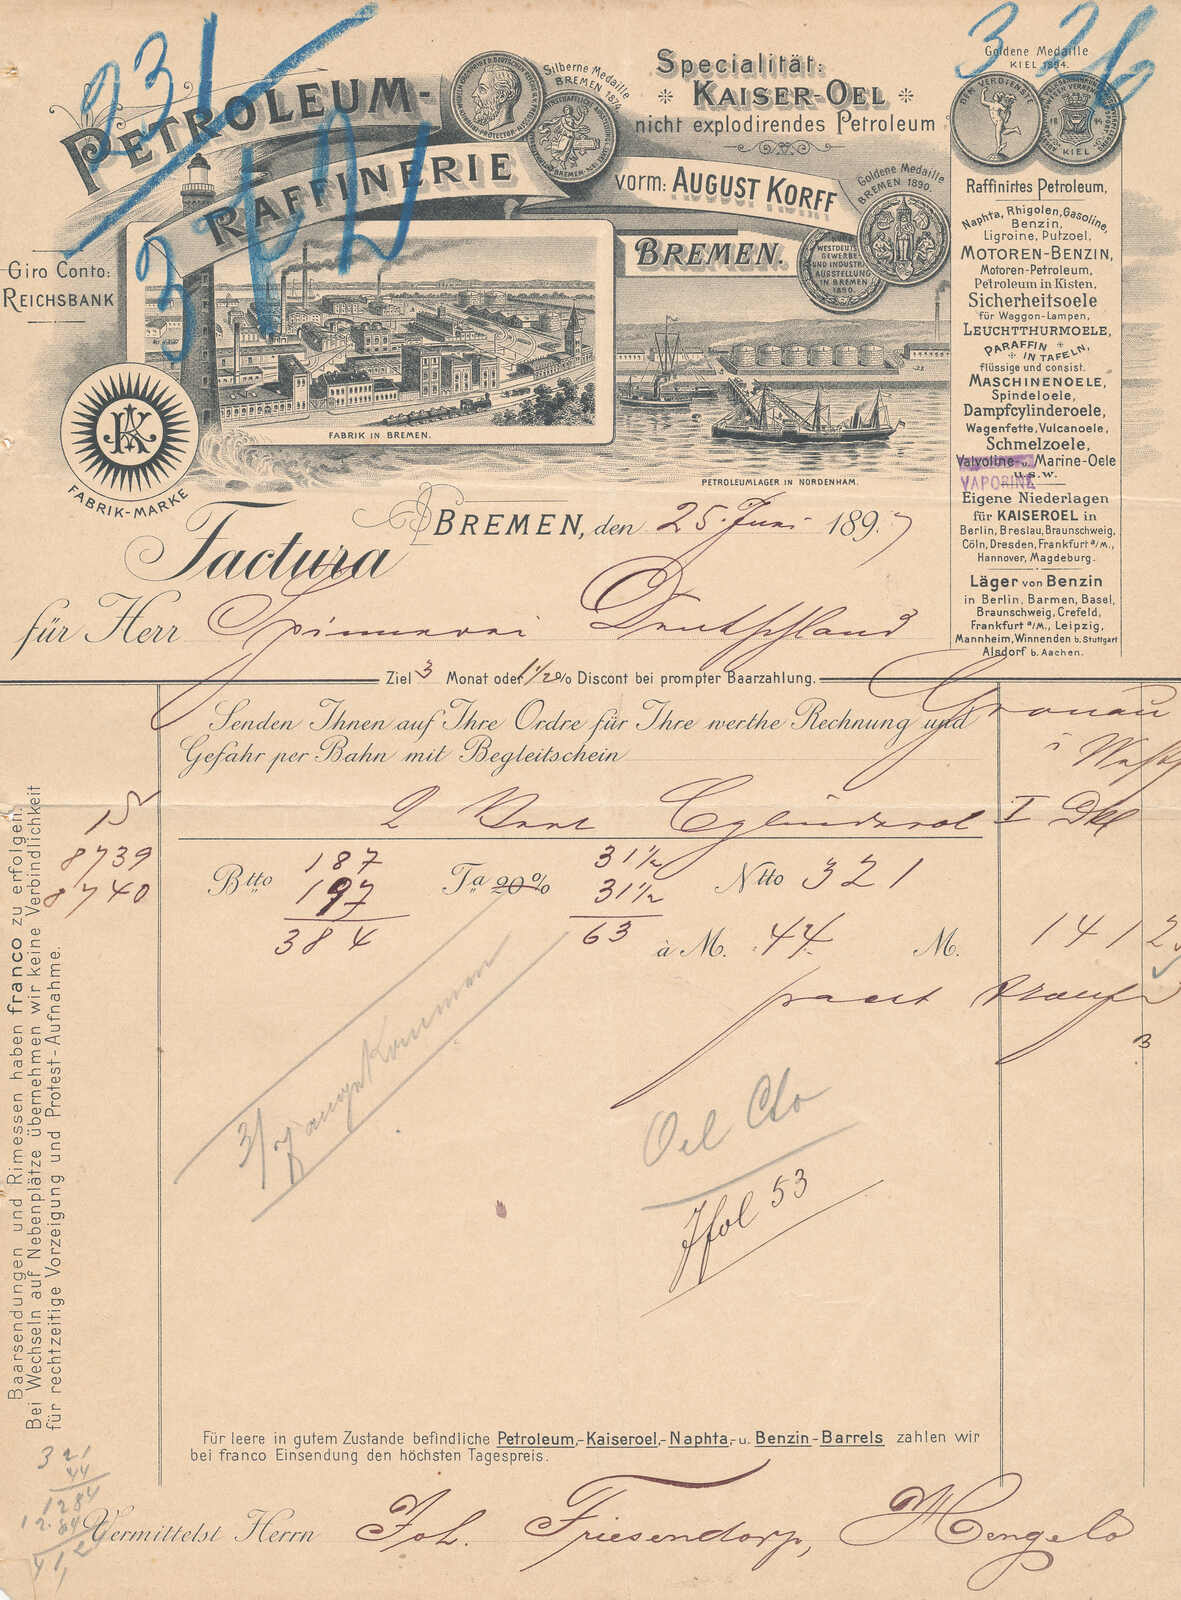 231
372
326
PETROLEUM-
RAFFINERIE
vorm: AUGUST KORFF
BREMEN.
Silberne Medaille
BREMEN 1874.
Specialität:
KAISER-OEL
nicht explodirendes Petroleum
Goldene Medaille
BREMEN 1890.
WESTDEUTS.
GEWERBE
UND INDUSTRI
AUSSTELLUNG
IN BREMEN
1890.
Goldene Medaille
KIEL 1894.
DEM VERDIENSTE
KIEL
Giro Conto:
REICHSBANK
FABRIK-MARKE
FABRIK IN BREMEN.
PETROLEUMLAGER IN NORDENHAM.
Raffinirtes Petroleum,
Naphta, Rhigolen, Gasoline,
Benzin,
Ligroine, Putzoel,
MOTOREN-BENZIN,
Motoren-Petroleum,
Petroleum in Kisten,
Sicherheitsoele
für Waggon-Lampen,
LEUCHTTHURMOELE,
PARAFFIN
IN TAFELN,
flüssige und consist.
MASCHINENOELE,
Spindeloele,
Dampfcylinderoele,
Wagenfette, Vulcanoele,
Schmelzoele,
Valvoline- u. Marine-Oele
u.s.w.
VAPORINE
Eigene Niederlagen
für KAISEROEL in
Berlin, Breslau, Braunschweig,
Cöln, Dresden, Frankfurt a/M.,
Hannover, Magdeburg.
Läger von Benzin
in Berlin, Barmen, Basel,
Braunschweig, Crefeld,
Frankfurt a/M., Leipzig,
Mannheim, Winnenden b. Stuttgart
Alsdorf b. Aachen.
BREMEN, den 25. Juni 1897
Factura
für Herr Spinnerei Deutschland
Ziel 3 Monat oder 1 1/2% Discont bei prompter Baarzahlung.
Gronau
i Westf
Senden Ihnen auf Ihre Ordre für Ihre werthe Rechnung und
Gefahr per Bahn mit Begleitschein
15 2 Cylinderoel I
8739 Btto 187 Ta 20% 31 1/2 Ntto 321
8740 197 31 1/2
384 63 à M. 44. M. 141 2
franco
3
3/7 angekommen
Oel Cto
Jfol 53
Baarsendungen und Rimessen haben franco zu erfolgen.
Bei Wechseln auf Nebenplätze übernehmen wir keine Verbindlichkeit
für rechtzeitige Vorzeigung und Protest-Aufnahme.
Für leere in gutem Zustande befindliche Petroleum,- Kaiseroel,- Naphta,- u. Benzin-Barrels zahlen wir
bei franco Einsendung den höchsten Tagespreis.
321
44
1284
1284
Vermittelst Herrn Joh. Friesendorp, Hengelo